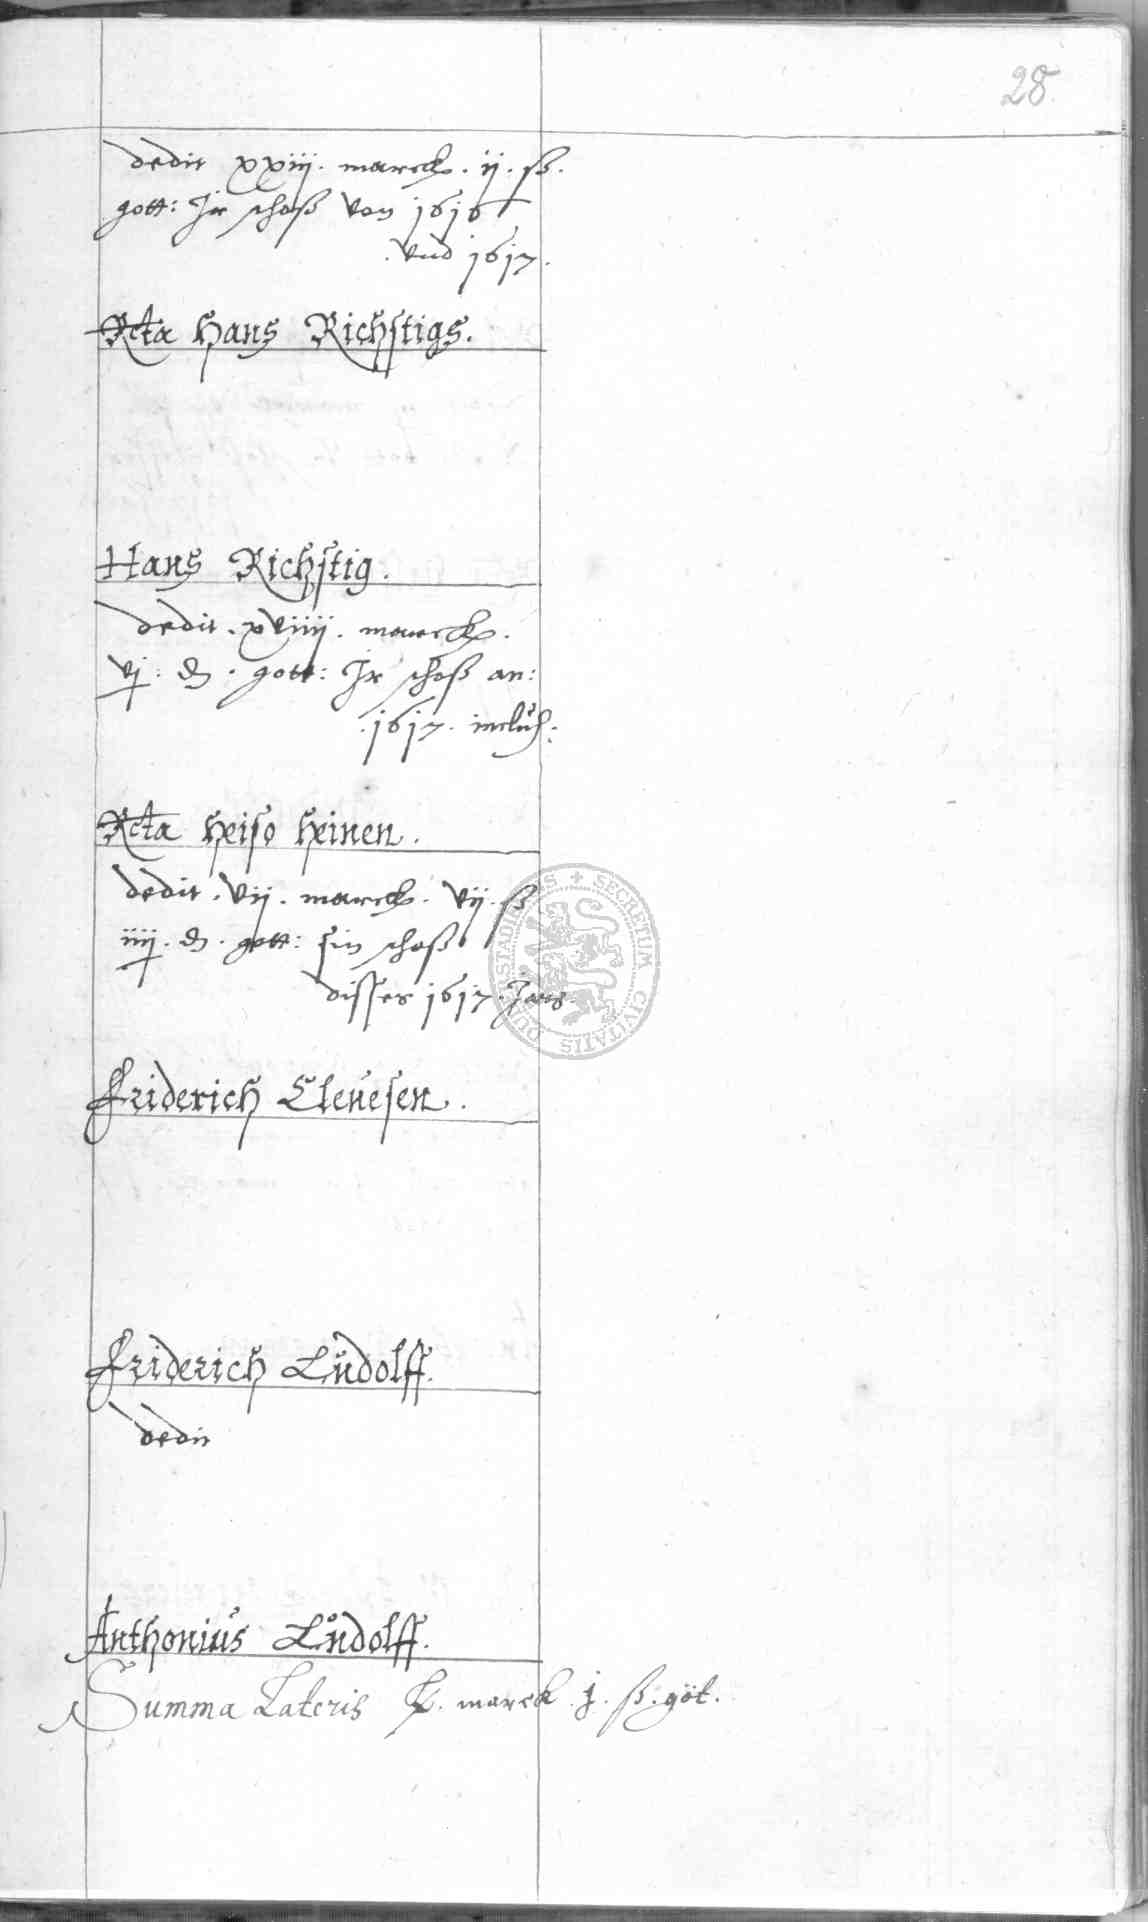 28
dedit xxiij. marck. ij. ß.
gott: Ir schoß von 1616
vnd 1617.
Rcta Hans Richstigs.
Hans Richstig.
dedit. xviiij. marck.
vj. ₰. gott: Ir schoß an:
1617. inclus:
Rcta Heiso Heinen.
dedit. vij. marck. vij. ß
iiij. ₰. gott: sin schoß
disses 1617. Jars.
Friderich Cleuesen.
Friderich Ludolff.
dedit
Anthonius Ludolff.
Summa Lateris L. marck j. ß. göt.
SECRETUM CIVITATIS DUDERSTADIENSIS